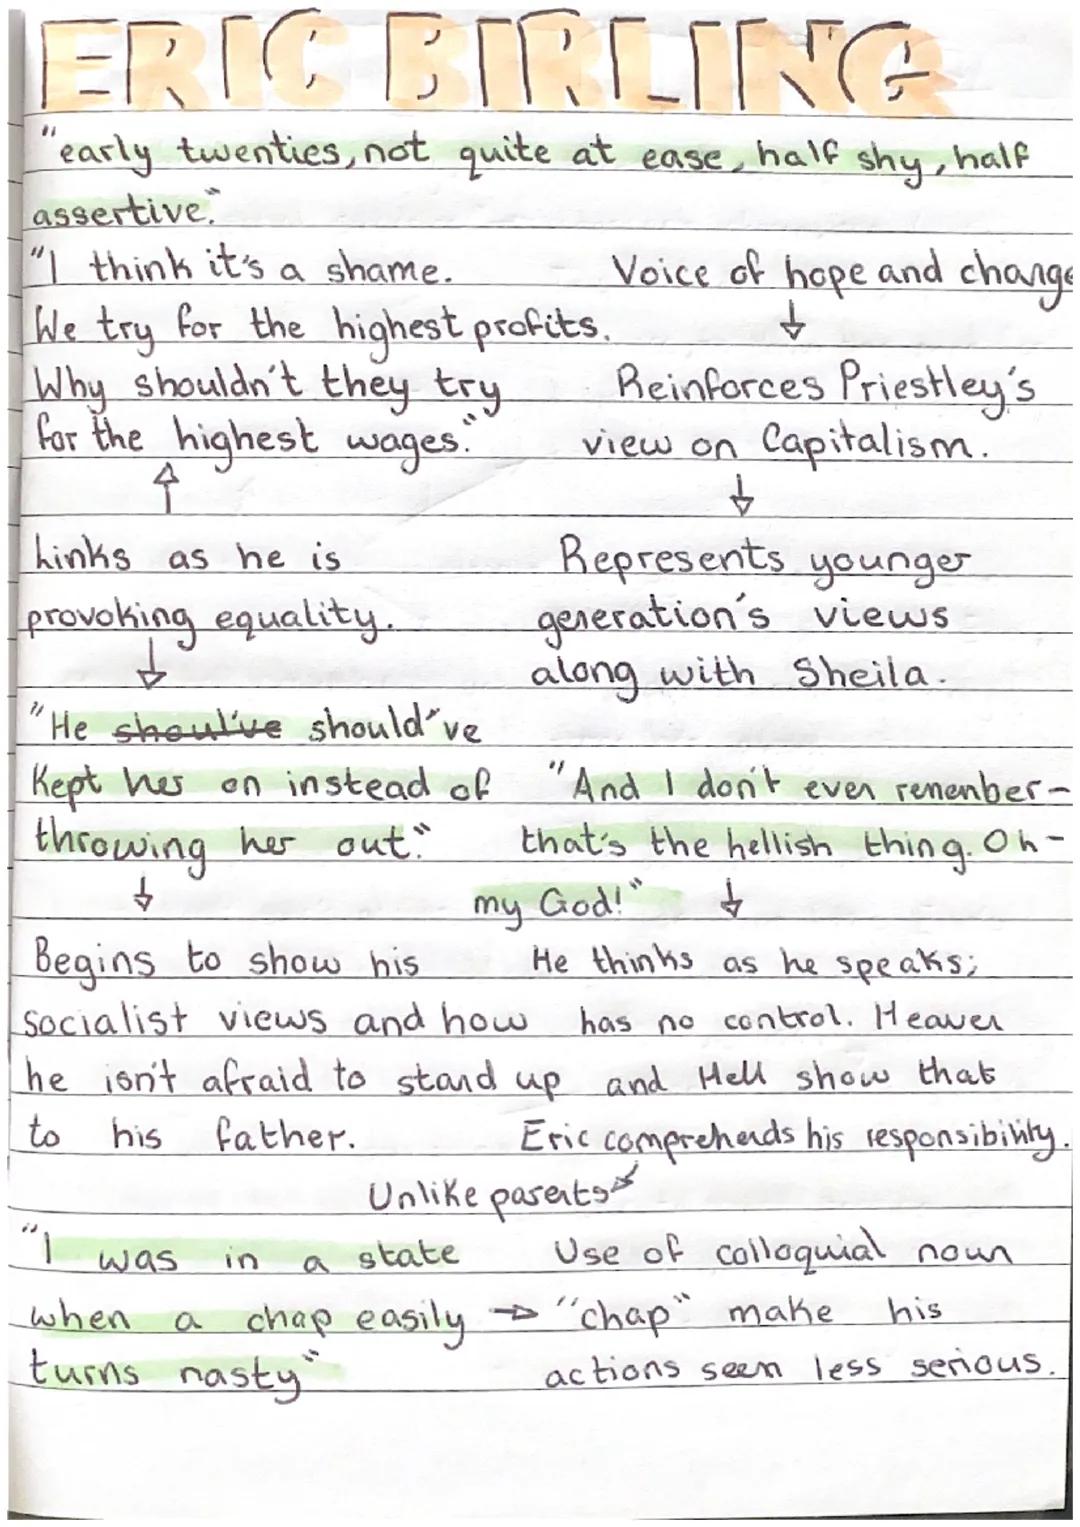 ERIC BIRLING
"early twenties, not quite at ease, half shy, half
assertive."
"I think it's a shame.
We try for the highest profits.
Why shouldn't they try
for the highest wages."
Voice of hope and change
Reinforces Priestley's
view on Capitalism.
Links as he is
provoking equality.
Represents younger
generation's views
along with Sheila.
"He shoul've should've
Kept her on instead of
throwing her out."
"And I don't even remember-
that's the hellish thing. Oh-
my God!"
Begins to show his
socialist views and how
he isn't afraid to stand up
to his father.
He thinks as he speaks;
has no control. Heaven
and Hell show that
Eric comprehends his responsibility.
Unlike parents
"I was in a state
when a chap easily
turns nasty"
Use of colloquial noun
"chap" make his
actions seem less serious.